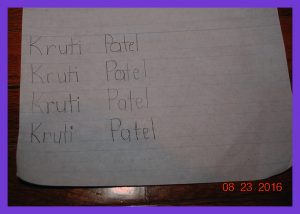 Kruti Patel
Kruti Patel
Kruti Patel
Kruti Patel
08 23 2016